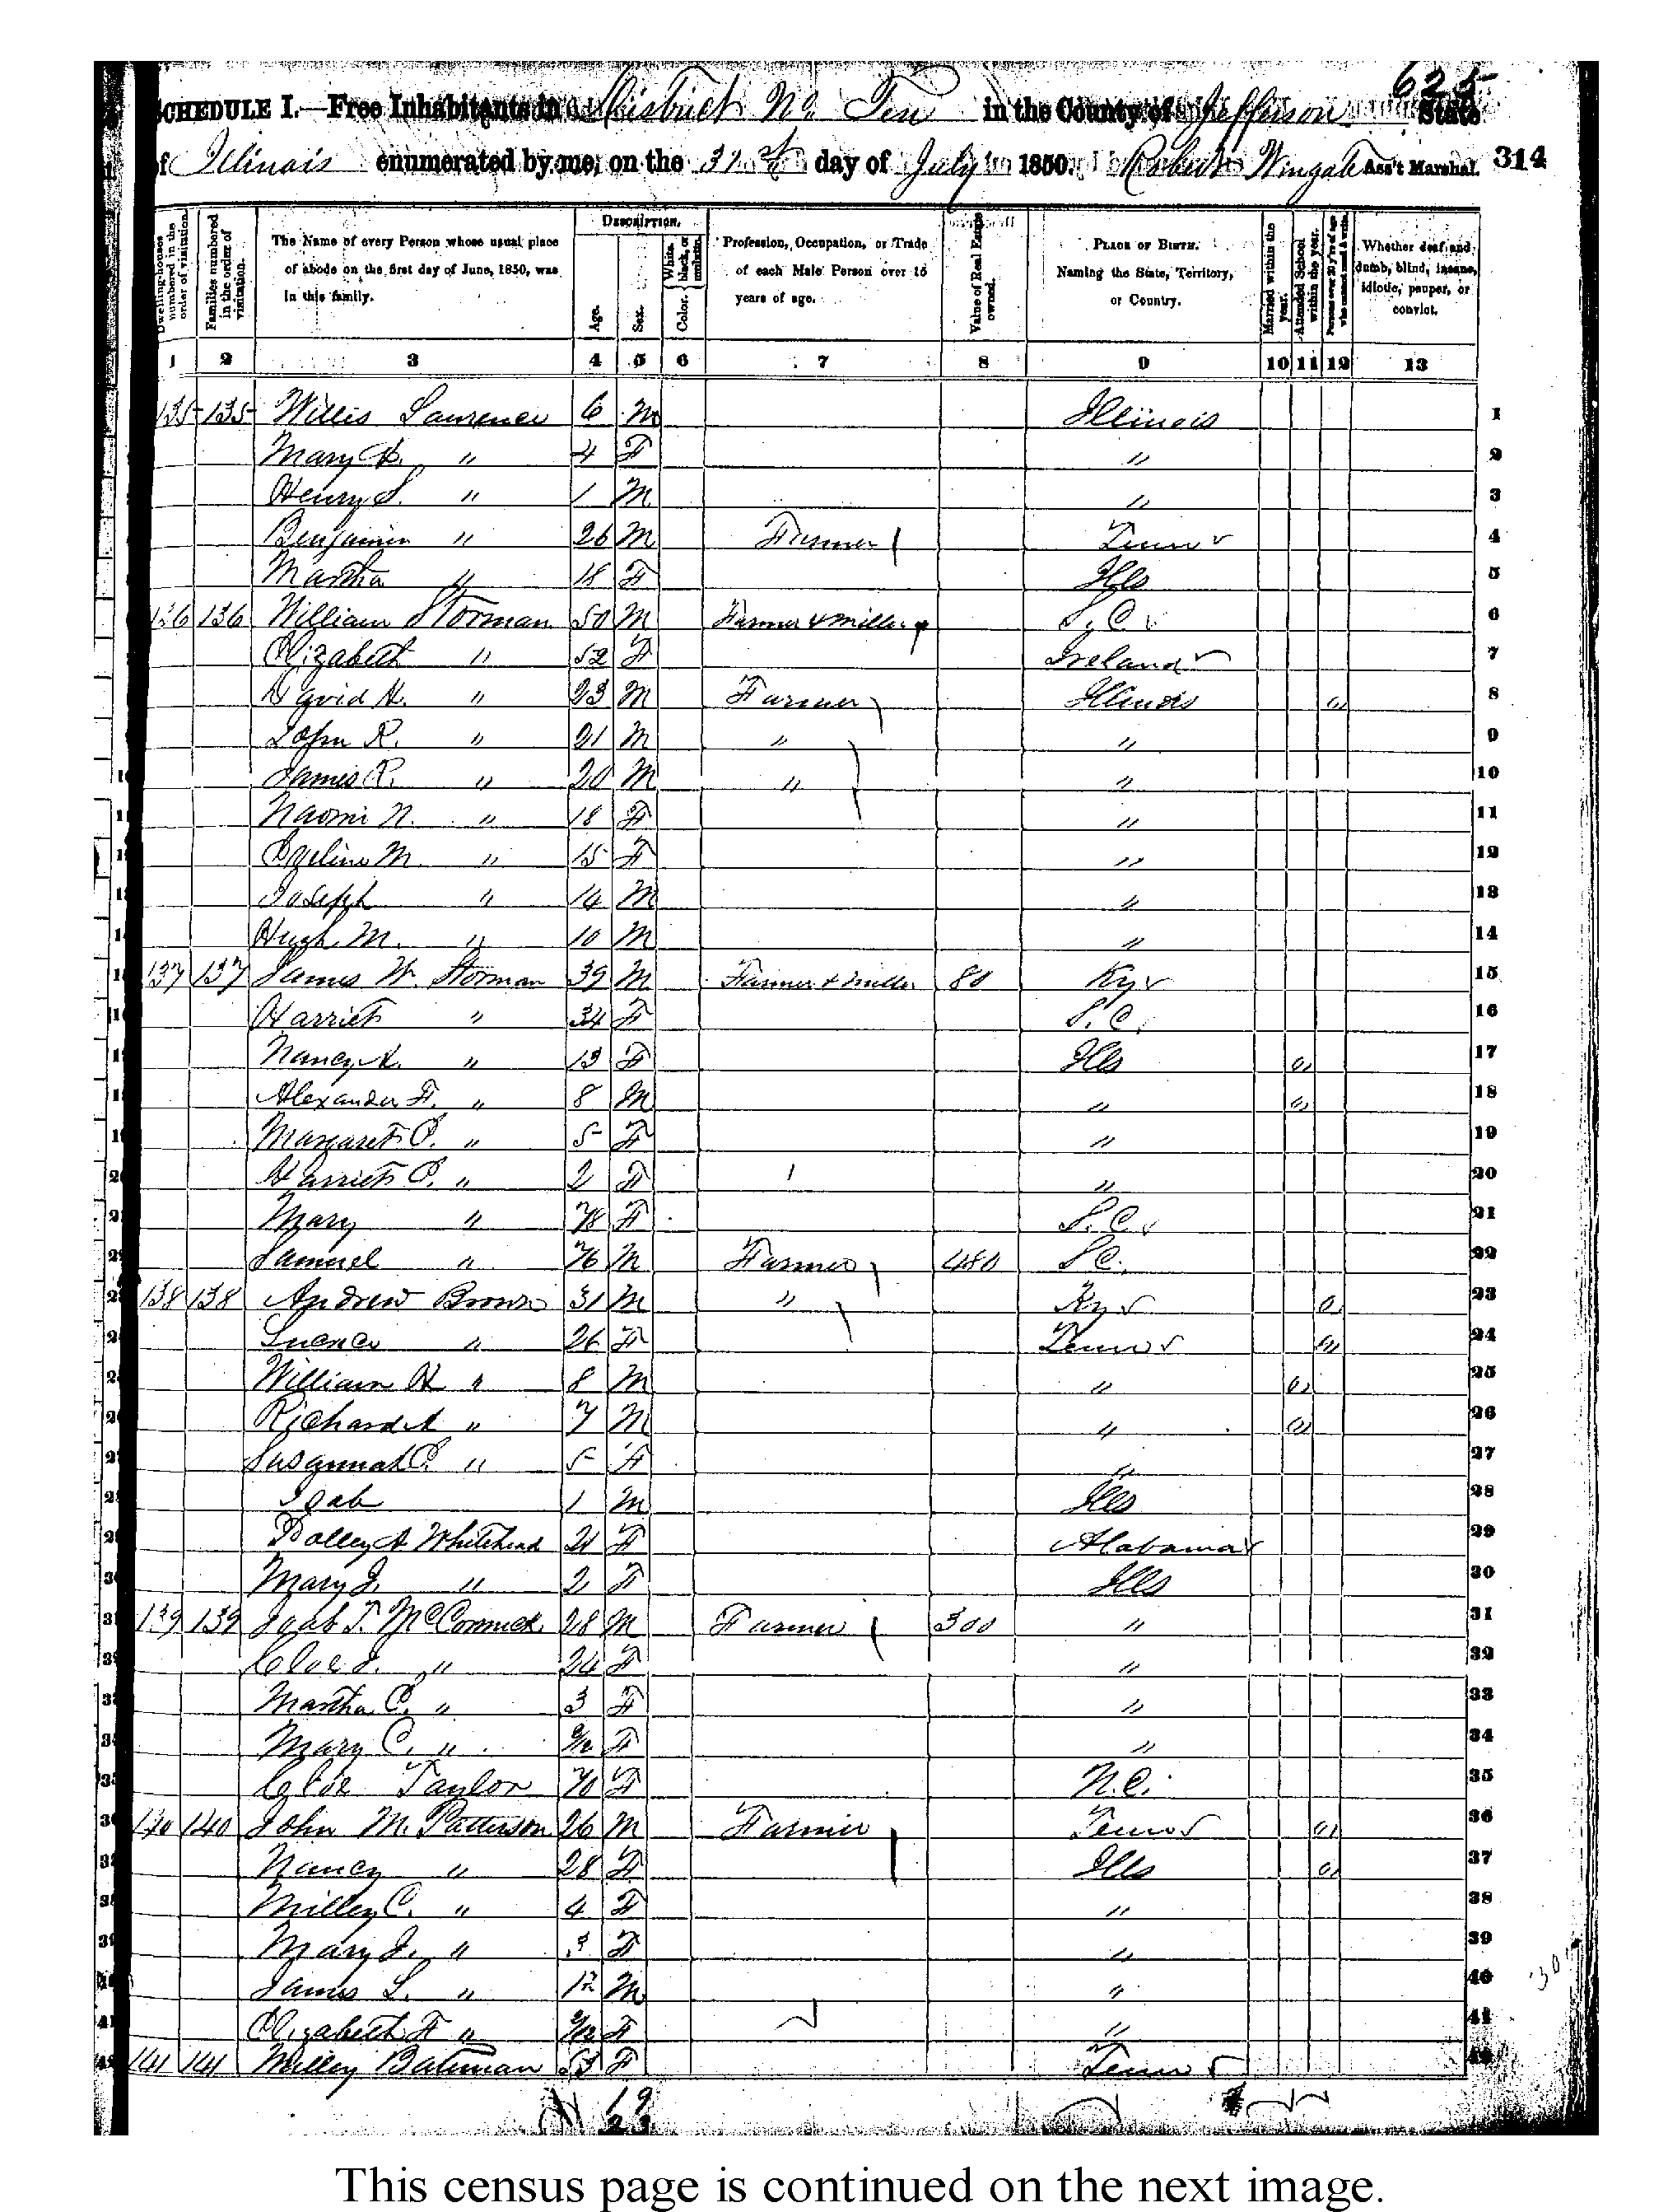 625
SCHEDULE I.—Free Inhabitants in District No. Ten in the County of Jefferson State
of Illinois enumerated by me, on the 31st day of July 1850. Robert Wingate Ass't Marshal. 314
Dwelling-houses numbered in the order of visitation.
Families numbered in the order of visitation.
The Name of every Person whose usual place of abode on the first day of June, 1850, was in this family.
DESCRIPTION.
Age.
Sex.
Color. White, black, or mulatto.
Profession, Occupation, or Trade of each Male Person over 15 years of age.
Value of Real Estate owned.
PLACE OF BIRTH. Naming the State, Territory, or Country.
Married within the year.
Attended School within the year.
Persons over 20 y'rs of age who cannot read & write.
Whether deaf and dumb, blind, insane, idiotic, pauper, or convict.
1 2 3 4 5 6 7 8 9 10 11 12 13
135 135 Willis Laurence 6 M Illinois 1
Mary " 4 F " 2
Henry S. " 1 M " 3
Benjamin " 26 M Farmer Tenn 4
Martha " 18 F Ills 5
136 136 William Storman 50 M Farmer & Miller S.C. 6
Elizabeth " 52 F Ireland 7
David H. " 23 M Farmer Illinois 8
John R. " 21 M " " 9
James R. " 20 M " " 10
Naomi N. " 18 F " 11
Eveline M. " 15 F " 12
Joseph " 14 M " 13
Hugh M. " 10 M " 14
137 137 James W. Storman 39 M Farmer & Miller 80 Ky 15
Harriet " 34 F S.C. 16
Nancy A. " 13 F Ills 17
Alexander F. " 8 M " 18
Margaret E. " 5 F " 19
Harriet E. " 2 F " 20
Mary " 78 F S.C. 21
Samuel " 76 M Farmer 480 S C. 22
138 138 Andrew Brown 31 M " Ky 23
" 26 F Tenn 24
William H " 8 M " 25
Richard A " 7 M " 26
Susannah E. " 5 F " 27
Joab 1 M Ills 28
Polley A Whitehead 21 F Alabama 29
Mary J. " 2 F Ills 30
139 139 Joab T. McCormick 28 M Farmer 300 " 31
Cloe J. " 24 F " 32
Martha E. " 3 F " 33
Mary C. " 9/12 F " 34
Cloe Taylor 70 F N.C. 35
140 140 John M. Patterson 26 M Farmer Tenn 36
Nancy " 28 F Ills 37
Milley C. " 4 F " 38
Mary J. " 3 F " 39
James L. " M " 40
Elizabeth F " 9/12 F " 41
141 141 Milley Bateman 53 F Tenn 42
19
23
This census page is continued on the next image.